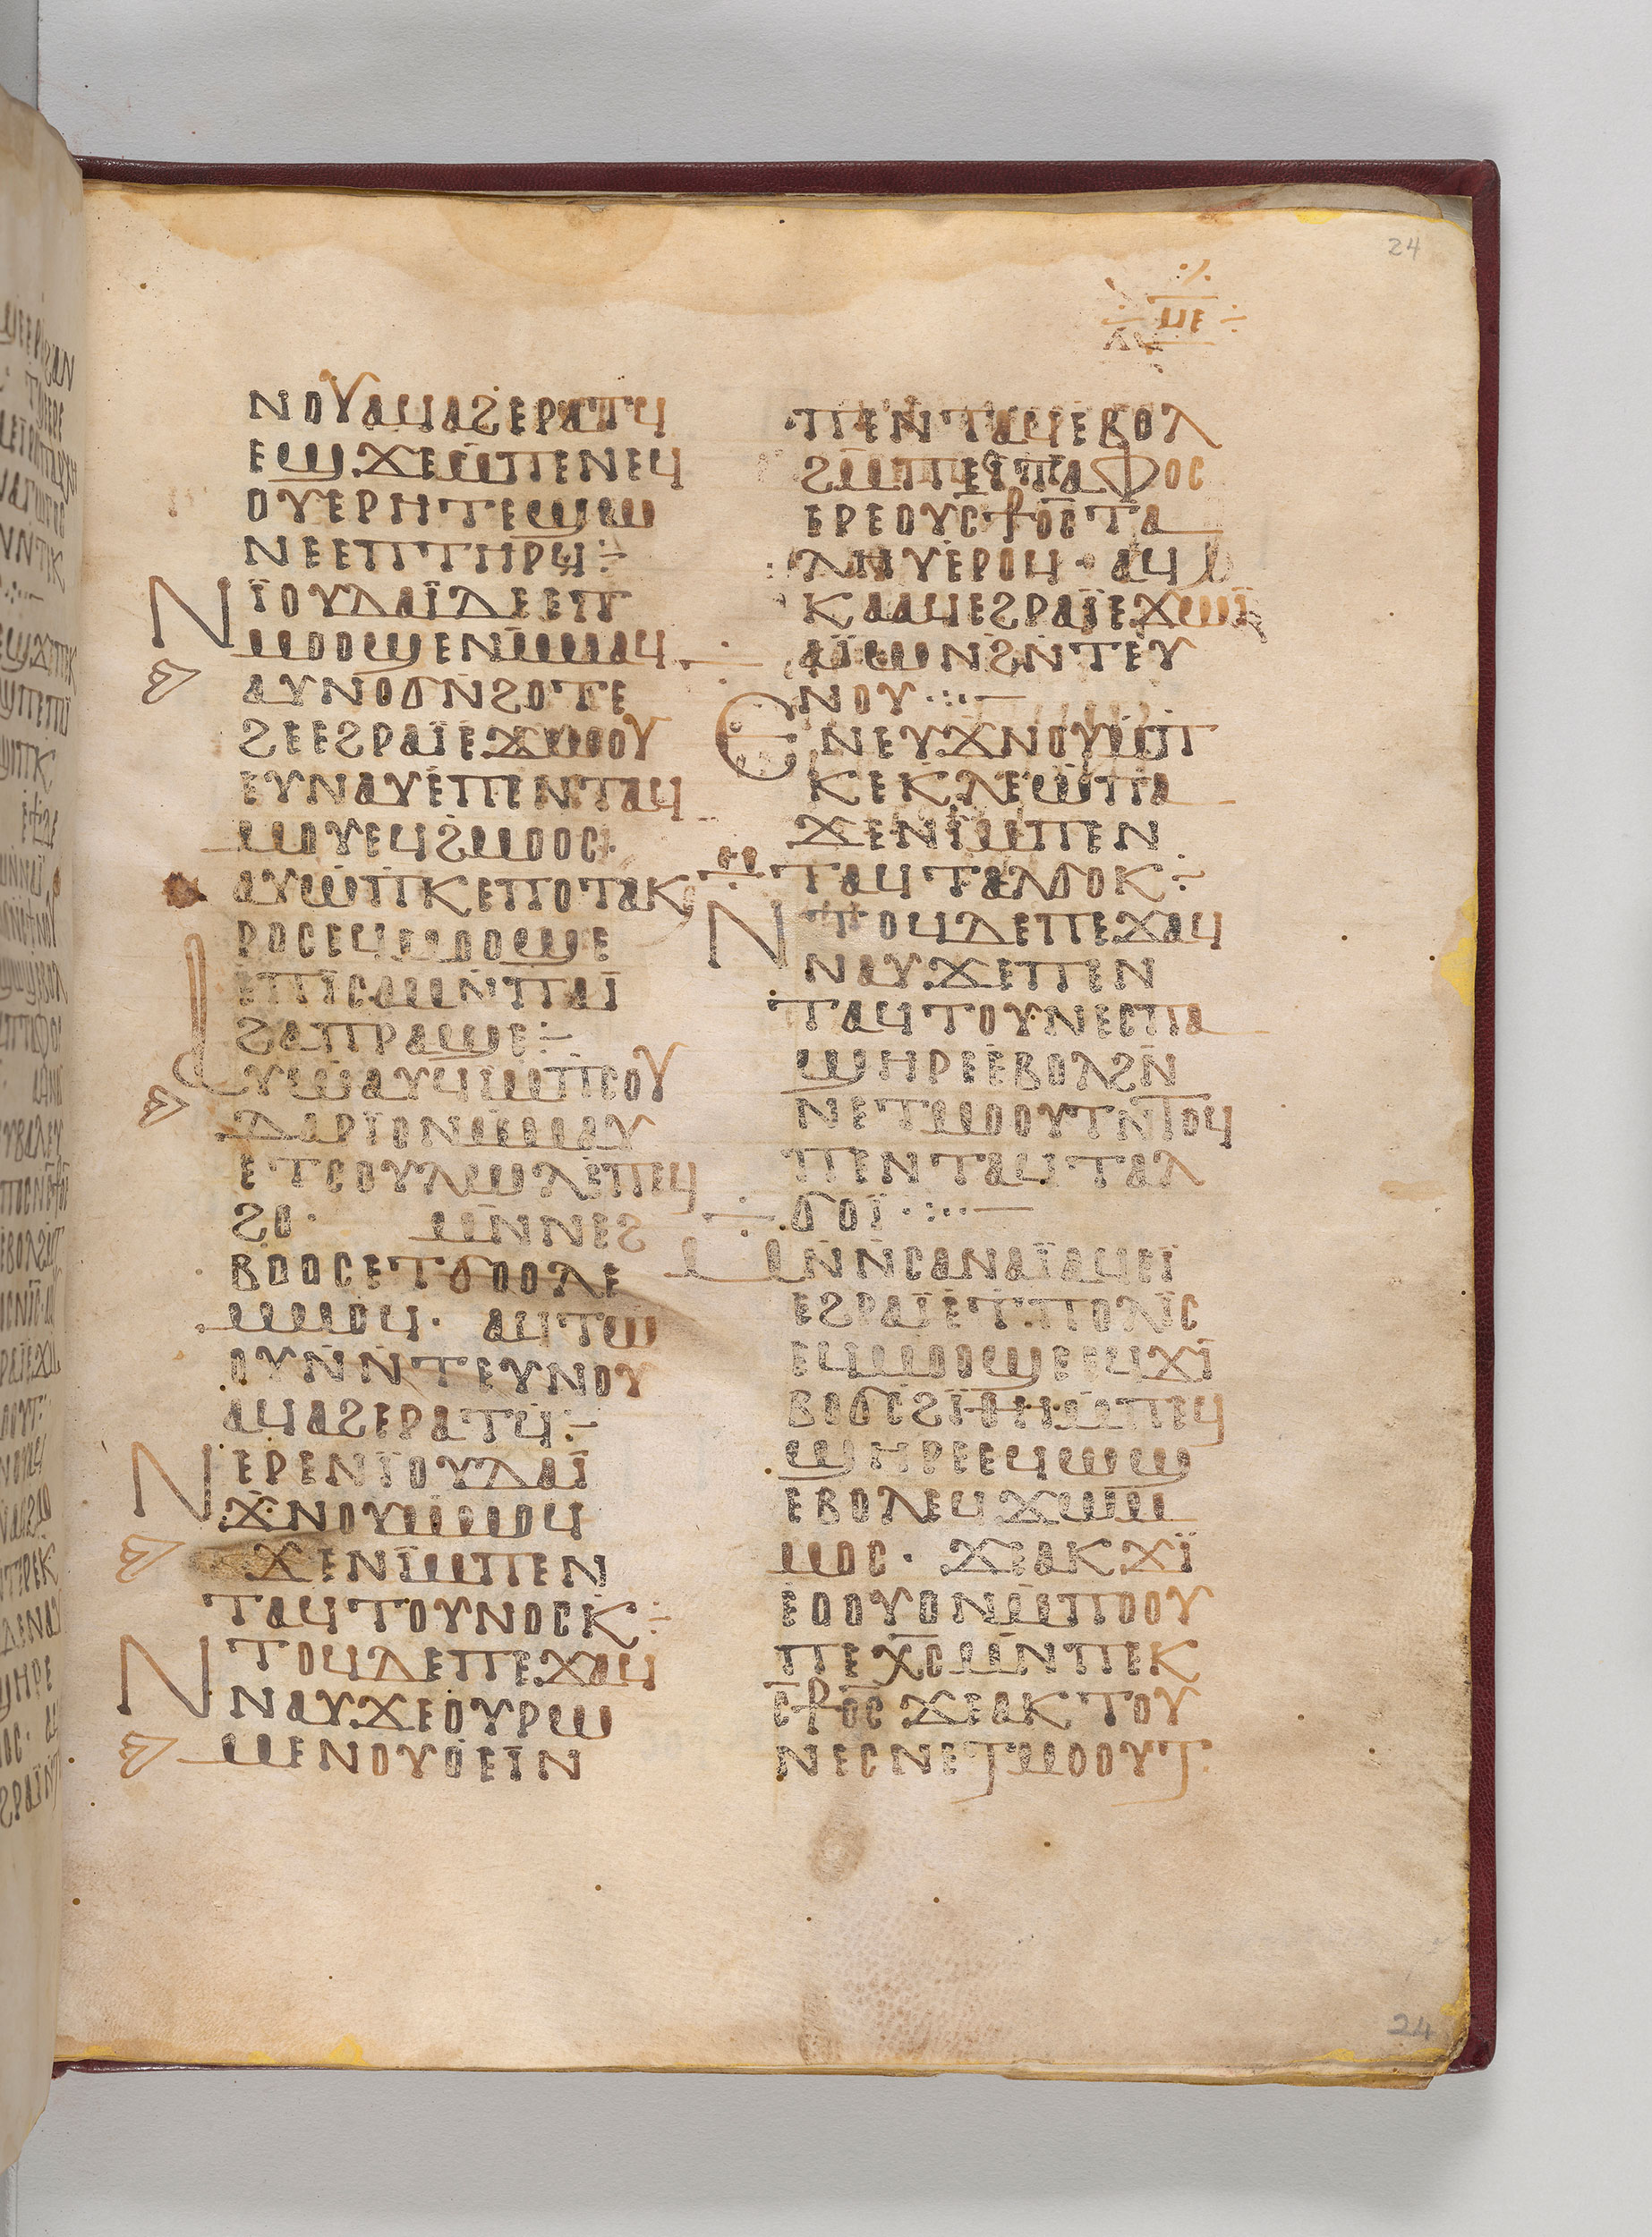 24
ⲙⲉ
ⲛⲟⲩⲁϥⲁϩⲉⲣⲁⲧϥ
ⲉϣϫⲉⲙ̄ⲡⲉⲛⲉϥ
ⲟⲩⲉⲣⲏⲧⲉϣⲱ
ⲛⲉⲉⲡⲧⲏⲣϥ÷
ⲛ̄ⲓ̈ⲟⲩⲇⲁⲓ̈ⲇⲉⲉⲧ
ⲙⲟⲟϣⲉⲛⲙ̄ⲙⲁϥ
ⲁⲩⲛⲟϭⲛ̄ϩⲟⲧⲉ
ϩⲉⲉϩⲣⲁⲓ̈ⲉϫⲱⲟⲩ
ⲉⲩⲛⲁⲩⲉ̇ⲡⲉⲛⲧⲁϥ
ⲙⲟⲩⲉϥϩⲙⲟⲟⲥ·
ⲁⲩⲱⲡⲕⲉⲡⲟⲧⲁⲕ
ⲣⲟⲥⲉϥⲙⲟⲟϣⲉ
ⲉⲡⲓ̈ⲥⲁⲙⲛ̄ⲡⲁⲓ̈
ϩⲁⲡⲣⲁϣⲉ÷
ⲁⲩⲱⲁⲩϥⲓⲙ̄ⲡⲥⲟⲩ
ⲇⲁⲣⲓ̈ⲟⲛⲙ̄ⲙⲁⲩ
ⲉⲧⲥⲟⲩⲗⲱⲗⲉ̇ⲡⲉϥ
ϩⲟ· ⲙⲛ̄ⲛⲉϩ
ⲃⲟⲟⲥⲉⲧϭⲟⲟⲗⲉ
ⲙ̄ⲙⲟϥ· ⲁϥⲧⲱ
ⲟⲩⲛⲛ̄ⲧⲉⲩⲛⲟⲩ
ⲁϥⲁϩⲉⲣⲁⲧϥ÷
ⲛⲉⲣⲉⲛⲓ̈ⲟⲩⲇⲁⲓ̈
ϫⲛⲟⲩⲙ̄ⲙⲟϥ
ϫⲉⲛⲓⲙ̄ⲡⲉⲛ
ⲧⲁϥⲧⲟⲩⲛⲟⲥⲕ̄÷
ⲛⲧⲟϥⲇⲉⲡⲉϫⲁϥ
ⲛⲁⲩϫⲉⲟⲩⲣⲱ
ⲙⲉⲛⲟⲩⲟⲉⲓ̈ⲛ
ⲡⲉⲛⲧⲁϥⲉⲓⲉⲃⲟⲗ
ϩⲙ̄ⲡⲉⲓ̈ⲧⲁⲫⲟⲥ
ⲉⲣⲉⲟⲩⲥ⳨ⲟⲥⲧⲁ
ⲗⲏⲩⲉⲣⲟϥ· ⲁϥ
ⲕⲁⲁϥⲉϩⲣⲁⲓ̈ⲉϫⲱⲓ̈
ⲁⲓ̈ⲱⲛϩ̄ⲛ̄ⲧⲉⲩ
ⲛⲟⲩ·:·—
ⲉⲛⲉⲩϫⲛⲟⲩⲙ̄ⲡ
ⲕⲉⲕⲗⲉⲱⲡⲁ
ϫⲉⲛⲓⲙ̄ⲡⲉⲛ
ⲧⲁϥⲧⲁⲗϭⲟⲕ÷
ⲛⲧⲟϥⲇⲉⲡⲉϫⲁϥ
ⲛⲁⲩϫⲉⲡⲉⲛ
ⲧⲁϥⲧⲟⲩⲛⲉⲥⲡⲁ
ϣⲏⲣⲉⲉ̇ⲃⲟⲗϩⲛ̄
ⲛⲉⲧⲙⲟⲟⲩⲧⲛ̄ⲧⲟϥ
ⲡⲉⲛⲧⲁϥⲧⲁⲗ
ϭⲟⲓ̈·:·—
ⲙⲛ̄ⲛ̄ⲥⲁⲛⲁⲓ̈ⲁϥⲉⲓ̈
ⲉϩⲣⲁⲓ̈ⲉ̇ⲧⲡⲟⲗⲓ̈ⲥ
ⲉϥⲙⲟⲟϣⲉⲉϥϫⲓ̈
ⲃⲟϭⲥϩⲓ̈ⲑⲏⲙ̄ⲡⲉϥ
ϣⲏⲣⲉⲉϥⲱϣ
ⲉⲃⲟⲗⲉϥϫⲱⲙ̄
ⲙⲟⲥ· ϫⲉⲁⲕϫⲓ̈
ⲉⲟⲟⲩⲟⲛⲙ̄ⲡⲟⲟⲩ
ⲡⲉⲭ̄ⲥ̄ⲙⲛ̄ⲡⲉⲕ
ⲥ̄⳨ⲟ̄ⲥ̄ϫⲉⲁⲕⲧⲟⲩ
ⲛⲉⲥⲛⲉⲧⲙⲟⲟⲩⲧ
24